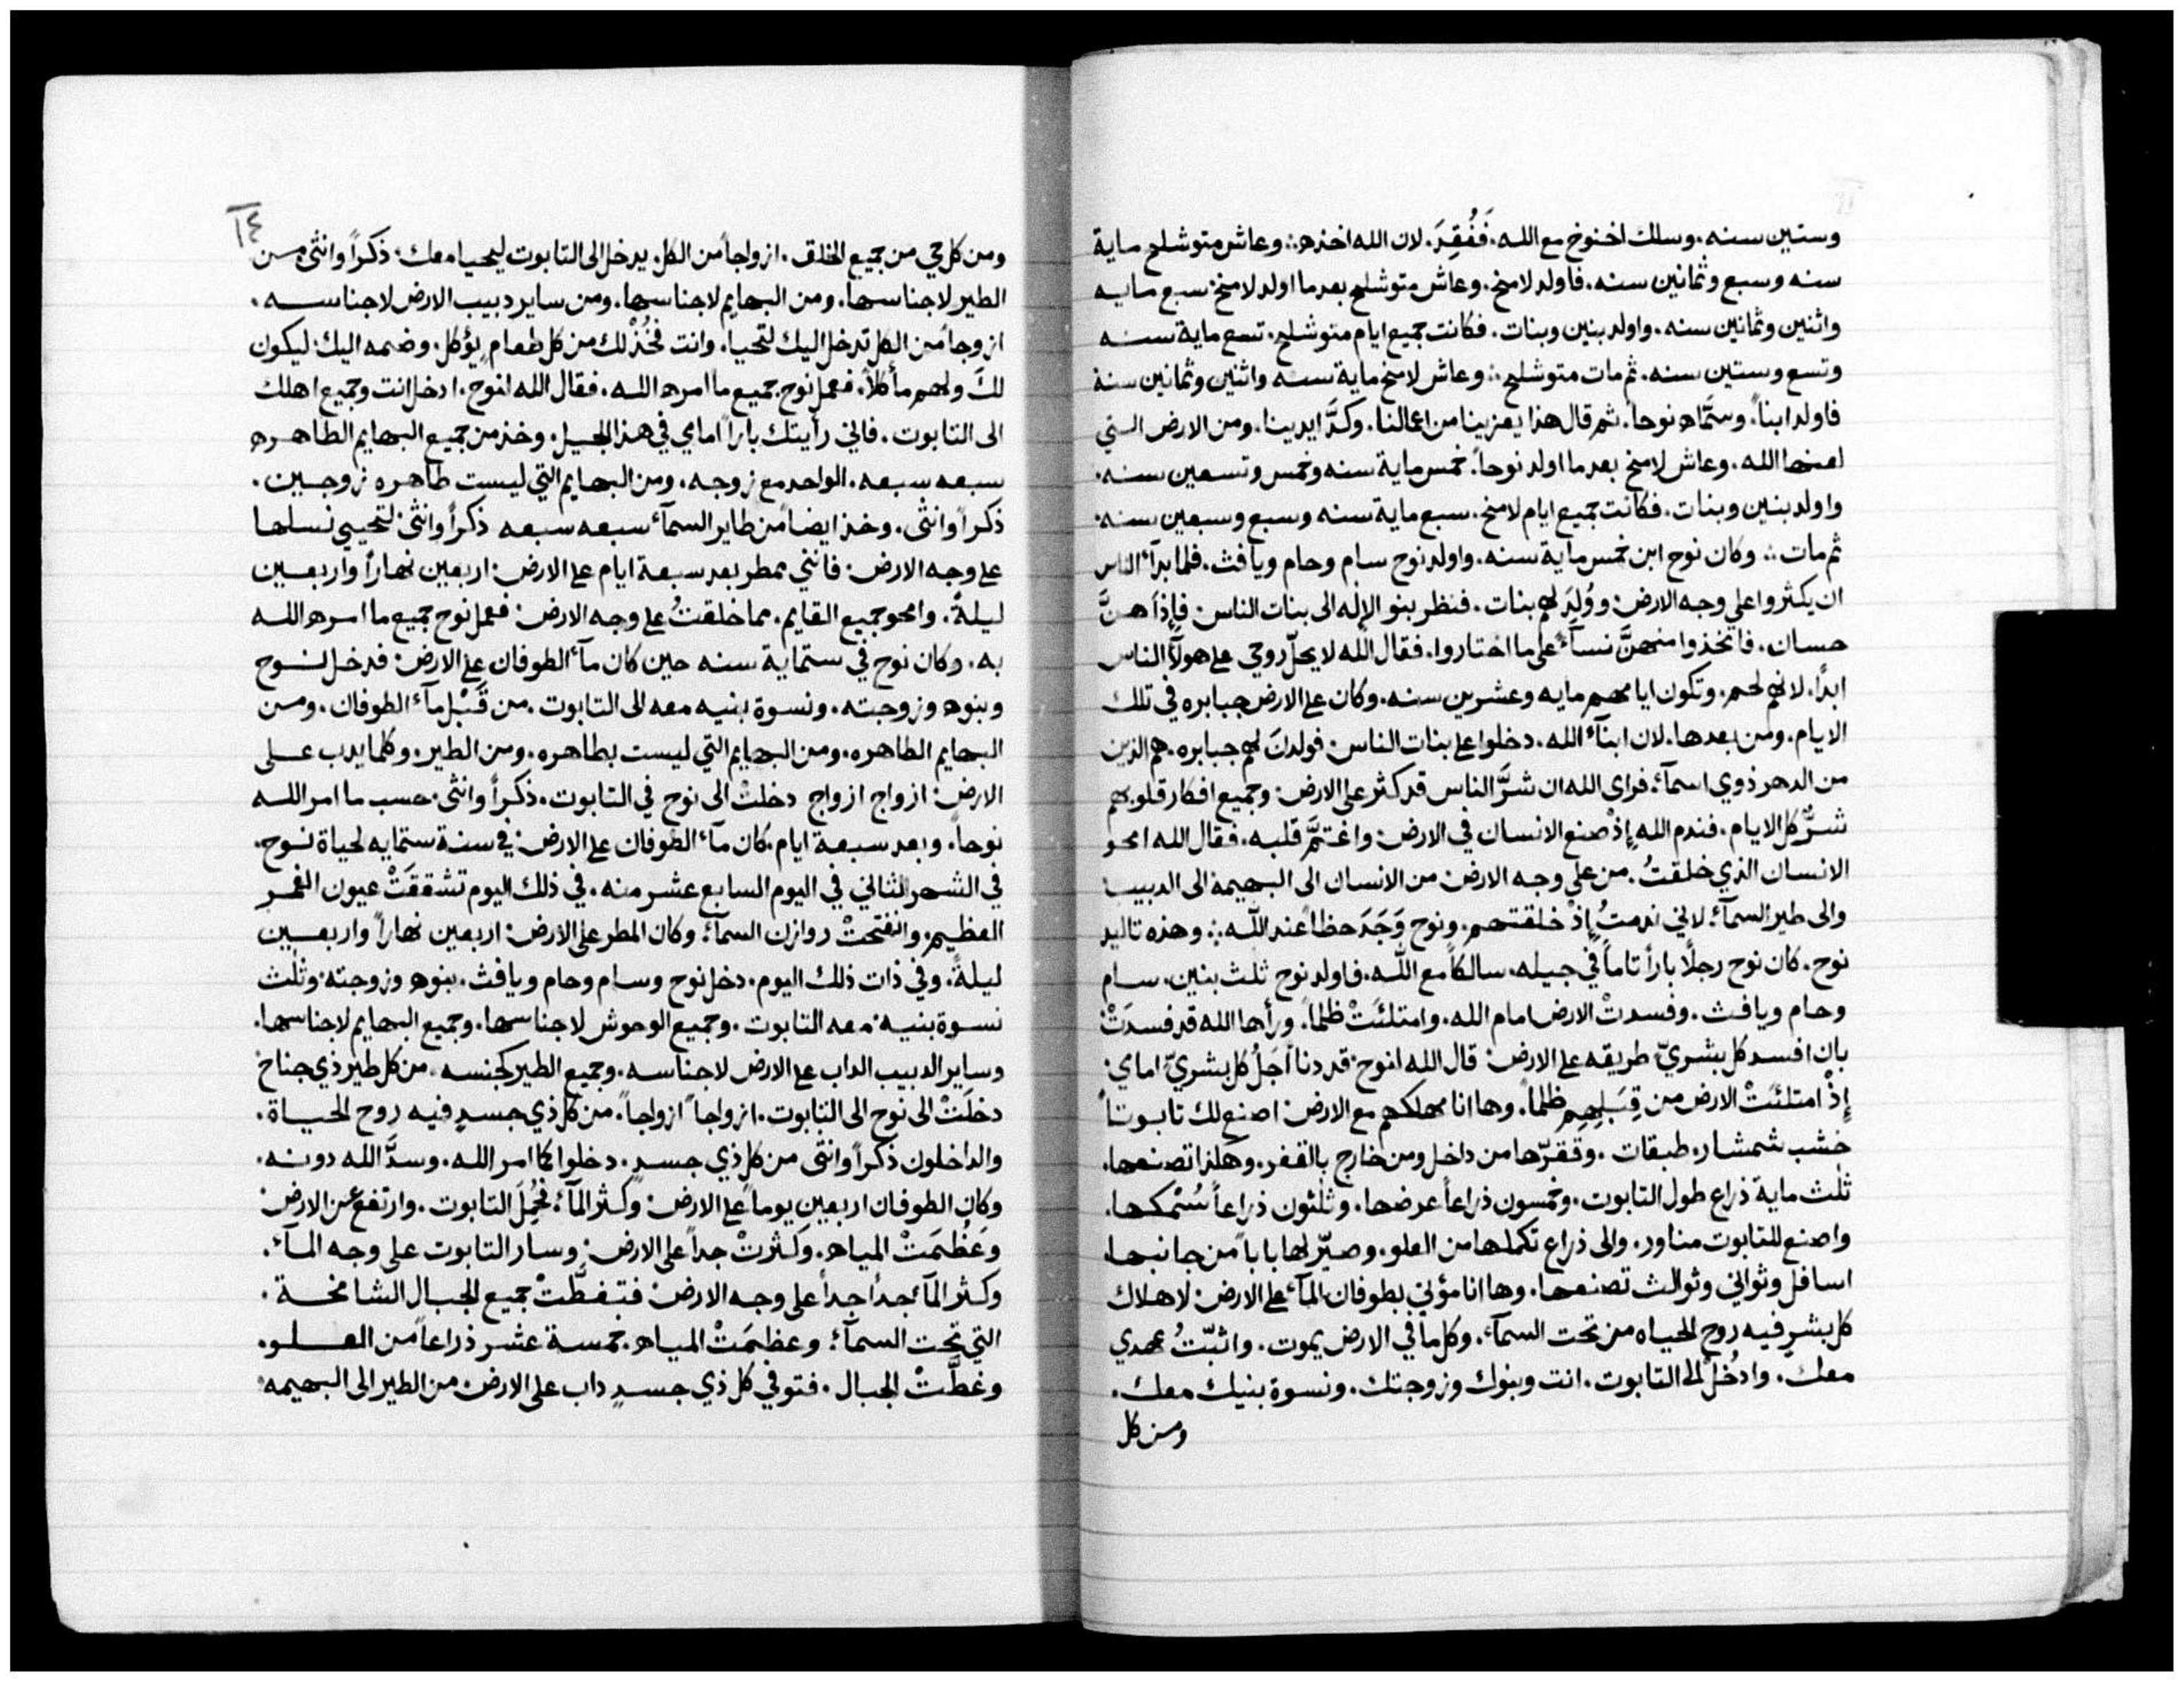 وستين سنه. وسلك اخنوخ مع الله. فَفُقِدَ. لان الله اخذه ∴ وعاش متوشلح ماية
سنه وسبع وثمانين سنه. فاولد لامخ. وعاش متوشلح بعدما اولد لامخ: سبع مايه
واثنين وثمانين سنه. واولد بنين وبنات. فكانت جميع ايام متوشلح. تسع ماية سنه
وتسع وستين سنه. ثم مات متوشلح ∴ وعاش لامخ ماية سنه واثنين وثمانين سنة
فاولد ابناً. وسمَّاه نوحاً. ثم قال هذا يعزينا من اعمالنا. وكدَّ ايدينا. ومن الارض التي
لعنها الله. وعاش لامخ بعدما اولد نوحاً. خمس ماية سنه وخمس وتسعين سنه.
واولد بنين وبنات. فكانت جميع ايام لامخ. سبع ماية سنه وسبع وسبعين سنه.
ثم مات ∴ وكان نوح ابن خمس ماية سنه. واولد نوح سام وحام ويافث. فلما بدآء الناس
ان يكثروا على وجه الارض: ووُلِدَ لهم بنات. فنظر بنو الإله الى بنات الناس: فإذا هنَّ
حسان. فاتخذوا منهنَّ نسآء على ما اختاروا. فقال الله لا يحلّ روحي على هولآء الناس
ابداً. لانهم لحم. وتكون ايامهم مايه وعشرين سنه. وكان على الارض جبابره في تلك
الايام. ومن بعدها. لان ابنآء الله. دخلوا على بنات الناس: فولدنَ لهم جبابره. هم الذين
من الدهر ذوي اسمآء: فراى الله ان شرَّ الناس قد كثر على الارض: وجميع افكار قلوبهم
شرٌّ كل الايام. فندم الله إذْ صنع الانسان في الارض: واغتمَّ قلبه. فقال الله امحو
الانسان الذي خلقتُ. من على وجه الارض: من الانسان الى البهيمة الى الدبيب
والى طير السمآء: لاني ندمتُ إذْ خلقتهم. ونوح وَجَدَ حظاً عند اللّه ∴ وهذه تاليد
نوح. كان نوح رجلًا باراً تاماً في جيله. سالكاً مع اللّه. فاولد نوح ثلث بنين. سام
وحام ويافث. وفسدتْ الارض امام الله. وامتلئَتْ ظلماً. ورأها الله قد فسدَتْ
بان افسد كل بشريّ طريقه على الارض: قال الله لنوح: قد دنا أجَلُ كل بشريّ امامي:
إذْ امتلئَتْ الارض من قِبَلِهِم ظلماً. وها انا مهلكهم مع الارض: اصنع لك تابوتاً
خشب شمشار. طبقات. وقفرّها من داخل ومن خارج بالقفر. وهكذا تصنعها.
ثلث ماية ذراع طول التابوت. وخمسون ذراعاً عرضها. وثلثون ذراعاً سُمْكها.
واصنع للتابوت مناور. والى ذراع تكملها من العلو. وصيّر لها باباً من جانبها.
اسافل وثواني وثوالث تصنعها. وها انا مؤتي بطوفان المآء على الارض: لاهلاك
كل بشرٍ فيه روح الحياه من تحت السمآء. وكل ما في الارض يموت. واثبّتُ عهدي
معك. وادخُلْ الى التابوت. انت وبنوك وزوجتك. ونسوة بنيك معك.
ومن كل
١٤
ومن كل حي من جميع الخلق. ازواجاً من الكل. يدخل الى التابوت ليحيا معك: ذكراً وانثى من
الطير لاجناسها. ومن البهايم لاجناسها. ومن ساير دبيب الارض لاجناسه.
ازوجاً من الكل تدخل اليك لتحيا. وانت فخُذْ لك من كل طعام يؤكل. وضمه اليك: ليكون
لكَ ولهم مأكلاً. فعمل نوح جميع ما امره الله. فقال الله لنوح. ادخل انت وجميع اهلك
الى التابوت. فاني رأيتك باراً امامي في هذا الجيل. وخذ من جميع البهايم الطاهره
سبعه سبعه. الواحد مع زوجه. ومن البهايم التي ليست طاهره زوجين.
ذكراً وانثى. وخذ ايضاً من طاير السمآء سبعه سبعه ذكراً وانثى: لتحيي نسلها
على وجه الارض: فانني ممطر بعد سبعة ايام على الارض: اربعين نهاراً واربعين
ليلةً. وامحو جميع القايم. مما خلقتُ على وجه الارض: فعمل نوح جميع ما امره الله
به. وكان نوح في ستماية سنه حين كان مآء الطوفان على الارض: فدخل نوح
وبنوه وزوجته. ونسوة بنيه معه الى التابوت. من قَبْل مآء الطوفان. ومن
البهايم الطاهره. ومن البهايم التي ليست بطاهره. ومن الطير. وكلما يدب على
الارض: ازواج ازواج دخلتْ الى نوح في التابوت. ذكراً وانثى. حسب ما امر الله
نوحاً. وبعد سبعة ايام. كان مآء الطوفان على الارض: في سنة ستمايه لحياة نوح.
في الشهر الثاني في اليوم السابع عشر منه. في ذلك اليوم تشققَتْ عيون الغمر
العظيم. وانفتحتْ روازن السمآء: وكان المطر على الارض: اربعين نهاراً واربعين
ليلةً. وفي ذات ذلك اليوم. دخل نوح وسام وحام ويافث. بنوه وزوجته: وثلث
نسوة بنيه. معه التابوت. وجميع الوحوش لاجناسها. وجميع البهايم لاجناسها.
وساير الدبيب الداب على الارض لاجناسه. وجميع الطير كجنسه. من كل طير ذي جناح
دخلَتْ الى نوح الى التابوت. ازواجاً ازواجاً. من كل ذي جسدٍ فيه روح الحياة.
والداخلون ذكراً وانثى من كل ذي جسد. دخلوا كما امر الله. وسدَّ الله دونه.
وكان الطوفان اربعين يوماً على الارض: وكثر المآء: فحُمِلَ التابوت. وارتفع عن الارض:
وعَظُمَتْ المياه. وكثرتْ جداً على الارض: وسار التابوت على وجه المآء.
وكثر المآء جداً جداً على وجه الارض: فتغطَّتْ جميع الجبال الشامخة.
التي تحت السمآء: وعظمَتْ المياه. خمسة عشر ذراعاً من العلو.
وغطَّتْ الجبال. فتوفي كل ذي جسدٍ داب على الارض: من الطير الى البهيمه.